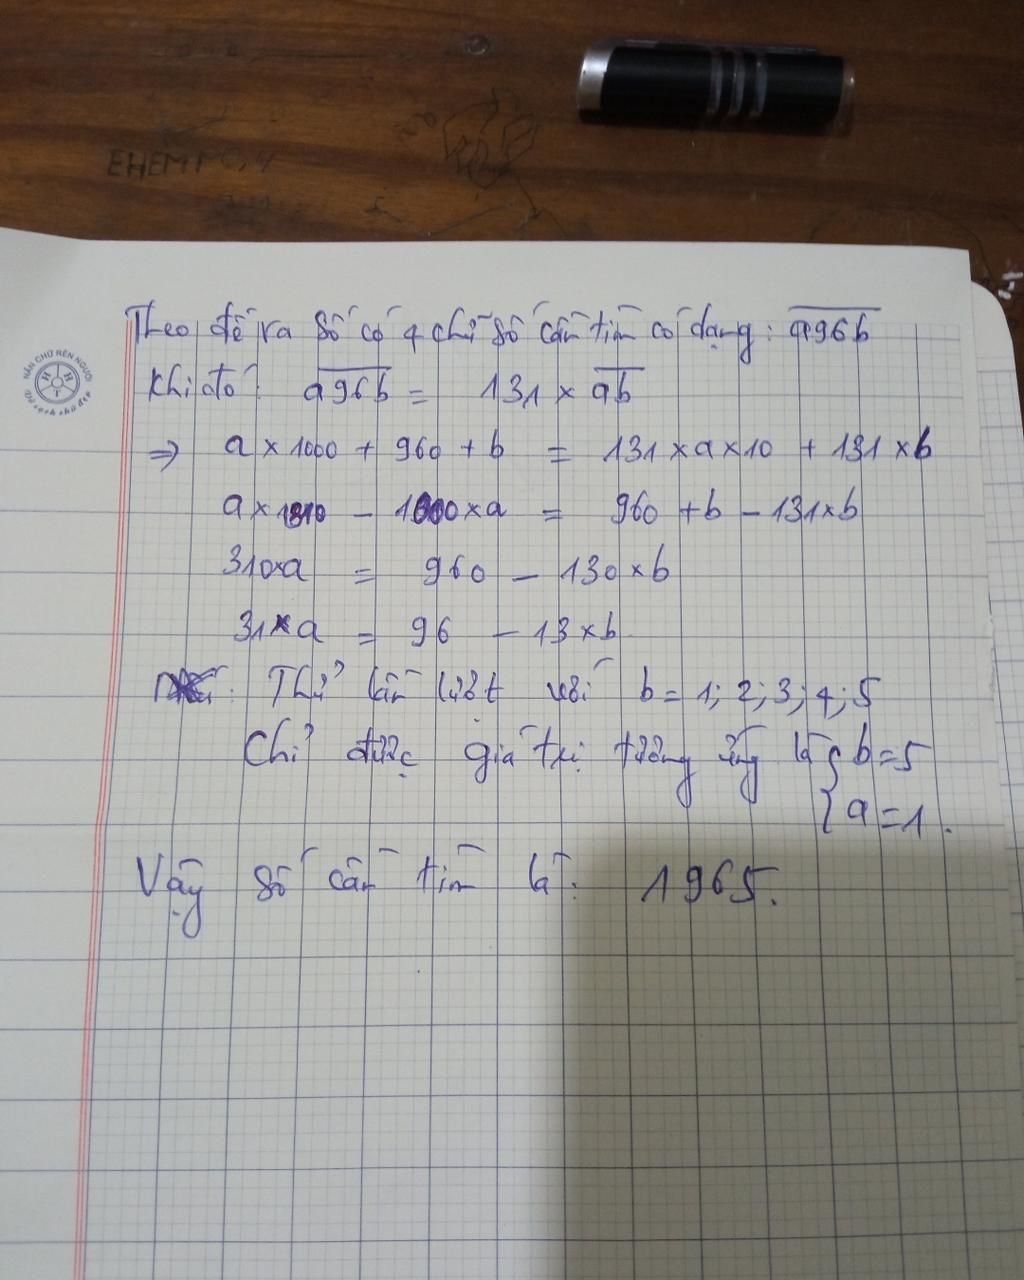 EHEM
NẮN CHỮ RÈN NGƯỜI
H H T
Vở sạch chữ đẹp
Theo đề ra số có 4 chữ số cần tìm có dạng: a96b
Khi đó: a96b = 131 × ab
=> a × 1000 + 960 + b = 131 × a × 10 + 131 × b
a × 1310 - 1000 × a = 960 + b - 131 × b
310×a = 960 - 130 × b
31 × a = 96 - 13 × b
Thử lần lượt với b = 1; 2; 3; 4; 5
Chỉ được giá trị tương ứng là { b = 5
a = 1.
Vậy số cần tìm là: 1965.